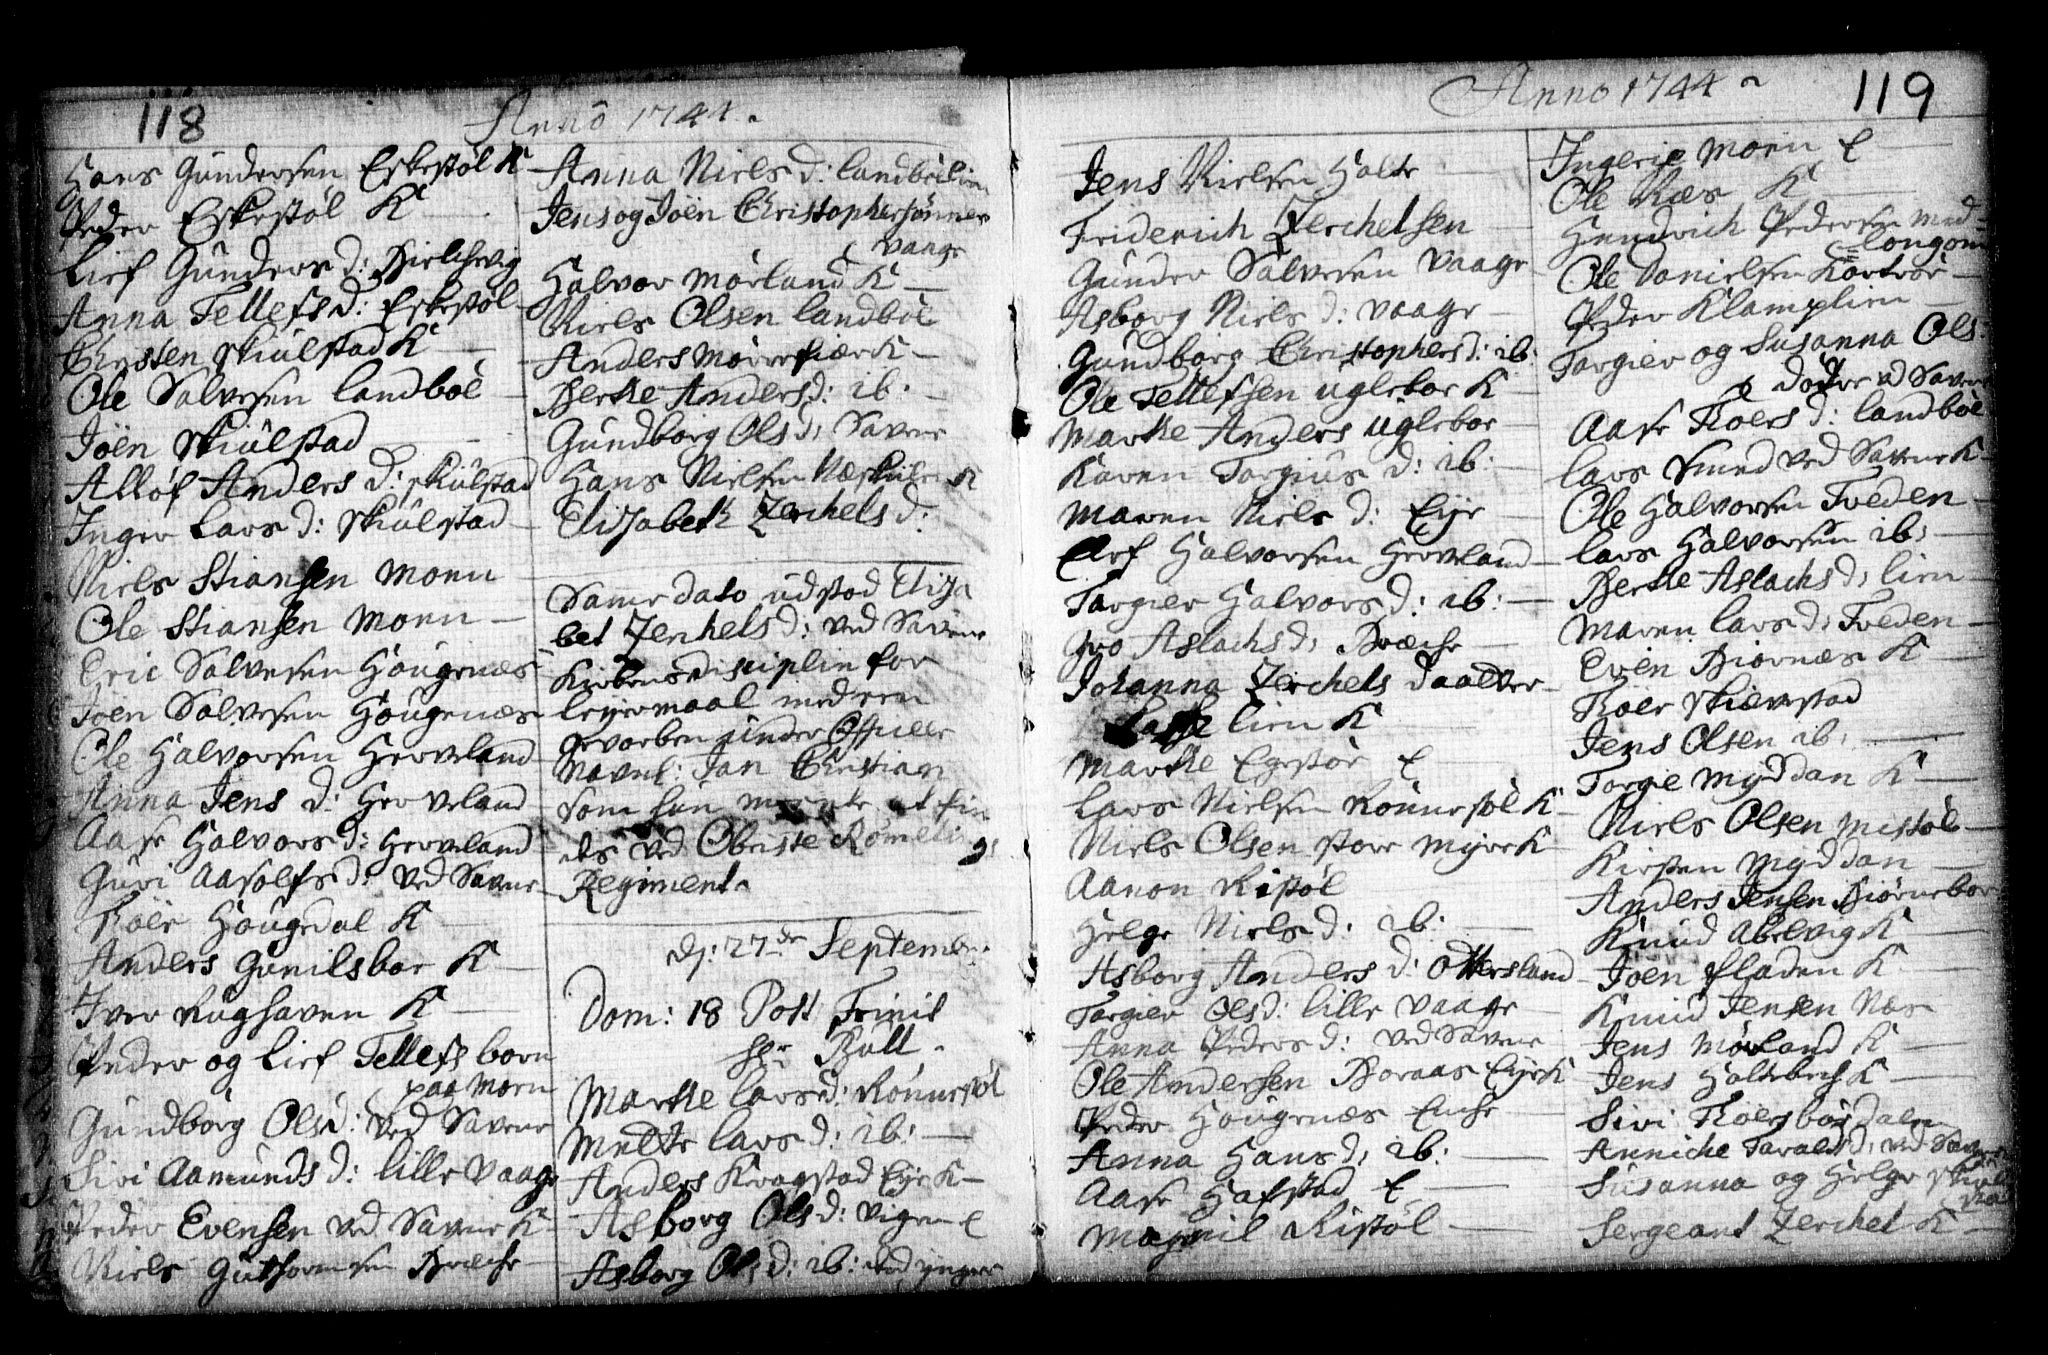 118
Anno 1744.
Hans Gundersen Eskestøl K
Peder Eskestøl K
Lief Gunders d: Bielchevig
Anna Tellefs d: Eskestøl
Christen Skiulstad K
Ole Salvesen Landböe
Joen Skiulstad
Allof Anders d: Skiulstad
Inger Lars d: Skiulstad
Niels Stiansen Moen
Ole Stiansen Moen
Eric Salvesen Hougenæs
Joen Salvesen Hougenæs
Ole Halvorsen Herveland
Anna Jens d: Herveland
Aase Halvors d: Herveland
Guri Aasolfs d: ved Savene
Roer Hougdal K
Anders Gunilsboe K
Iver Rughaven K
Peder og Lief Tellefs born
paa Moen
Gundborg Ols d: ved Savene
Siri Aamunds d: lille Vaage
Peder Evensen ved Savene K
Niels Guthormsen Bræche
Anna Niels d: Landböelien
Jens og Joen Christophersønner
Vaage
Halvor Mørland K
Niels Olsen Landböe
Anders Morrekiær K
Berthe Anders d: ib:
Gundborg Ols d: Savene
Hans Nielsen Næskilen K
Elisabeth Zerchels d:
Same dato udstod Elisa
bet Zerkels d: ved Savene
Kirkens disciplin for
leyermaal med een
gevorben under Officeer
Navnl: Jan Christian
som hun meente at fin
des ved Obriste Rømelings
Regiment.
d: 27de Septembr.
Dom: 18 Post Trinit
Hr Bull.
Marthe Lars d: Rønnestøl
Mette Lars d: ib:
Anders Kragstad Eye K
Asborg Ols d: Vigen E
Asborg Ols d: ib: end yngre
Anno 1744
119
Jens Nielsen Holte
Friderich Zerchelsen
Gunder Salvesen Vaage
Asborg Niels d: Vaage
Gundborg Christophers d: ib:
Ole Tellefsen Ugleboe K
Marthe Anders Ugleboe
Karen Torgius d: ib:
Maren Niels d: Eye
Leif Halvorsen Herveland
Torgier Halvors d: ib:
Gro Aslachs d: Bræche
Johanna Zerchels daatter
Lasse Lien K
Marthe Egestøe E
Lars Nielsen Rønnestøl K
Niels Olsen store Myre K
Aanon Ristøl
Helge Niels d: ib:
Asborg Anders d: Ottersland
Torgier Ols d: lille Vaage
Anna Peders d: ved Savene
Ole Andersen Boraas Eye K
Peder Hougenæs Enche
Anna Hans d: ib:
Aase Hafstad E
Magnil Ristøl
Ingerie Moen E
Ole Næs K
Hendrich Pedersen Med
longom
Ole Danielsen Kortrøe
Peder Klamplien
Torgier og Susanna Ols
døttre ved Savene
Aase Roers d: Landböe
Lars Smed ved Savene K
Ole Halvorsen Tveden
Lars Halvorsen ib:
Berthe Aslachs d: Lien
Maren Lars d: Tveden
Even Biornæs K
Roer Skiævestad
Jens Olsen ib:
Torgie Myddan K
Niels Olsen Mistøl
Kirsten Myddan
Anders Jensen Biørneboe
Knud Abelvig K
Joen Fladen K
Knud Jensen Næs
Jens Mørland K
Jens Holtebech K
Siri Roers Bøsdalen
Anniche Taralds d: ved Savene
Susanna og Helge Skiæve
stad
Sergeant Zerchel K